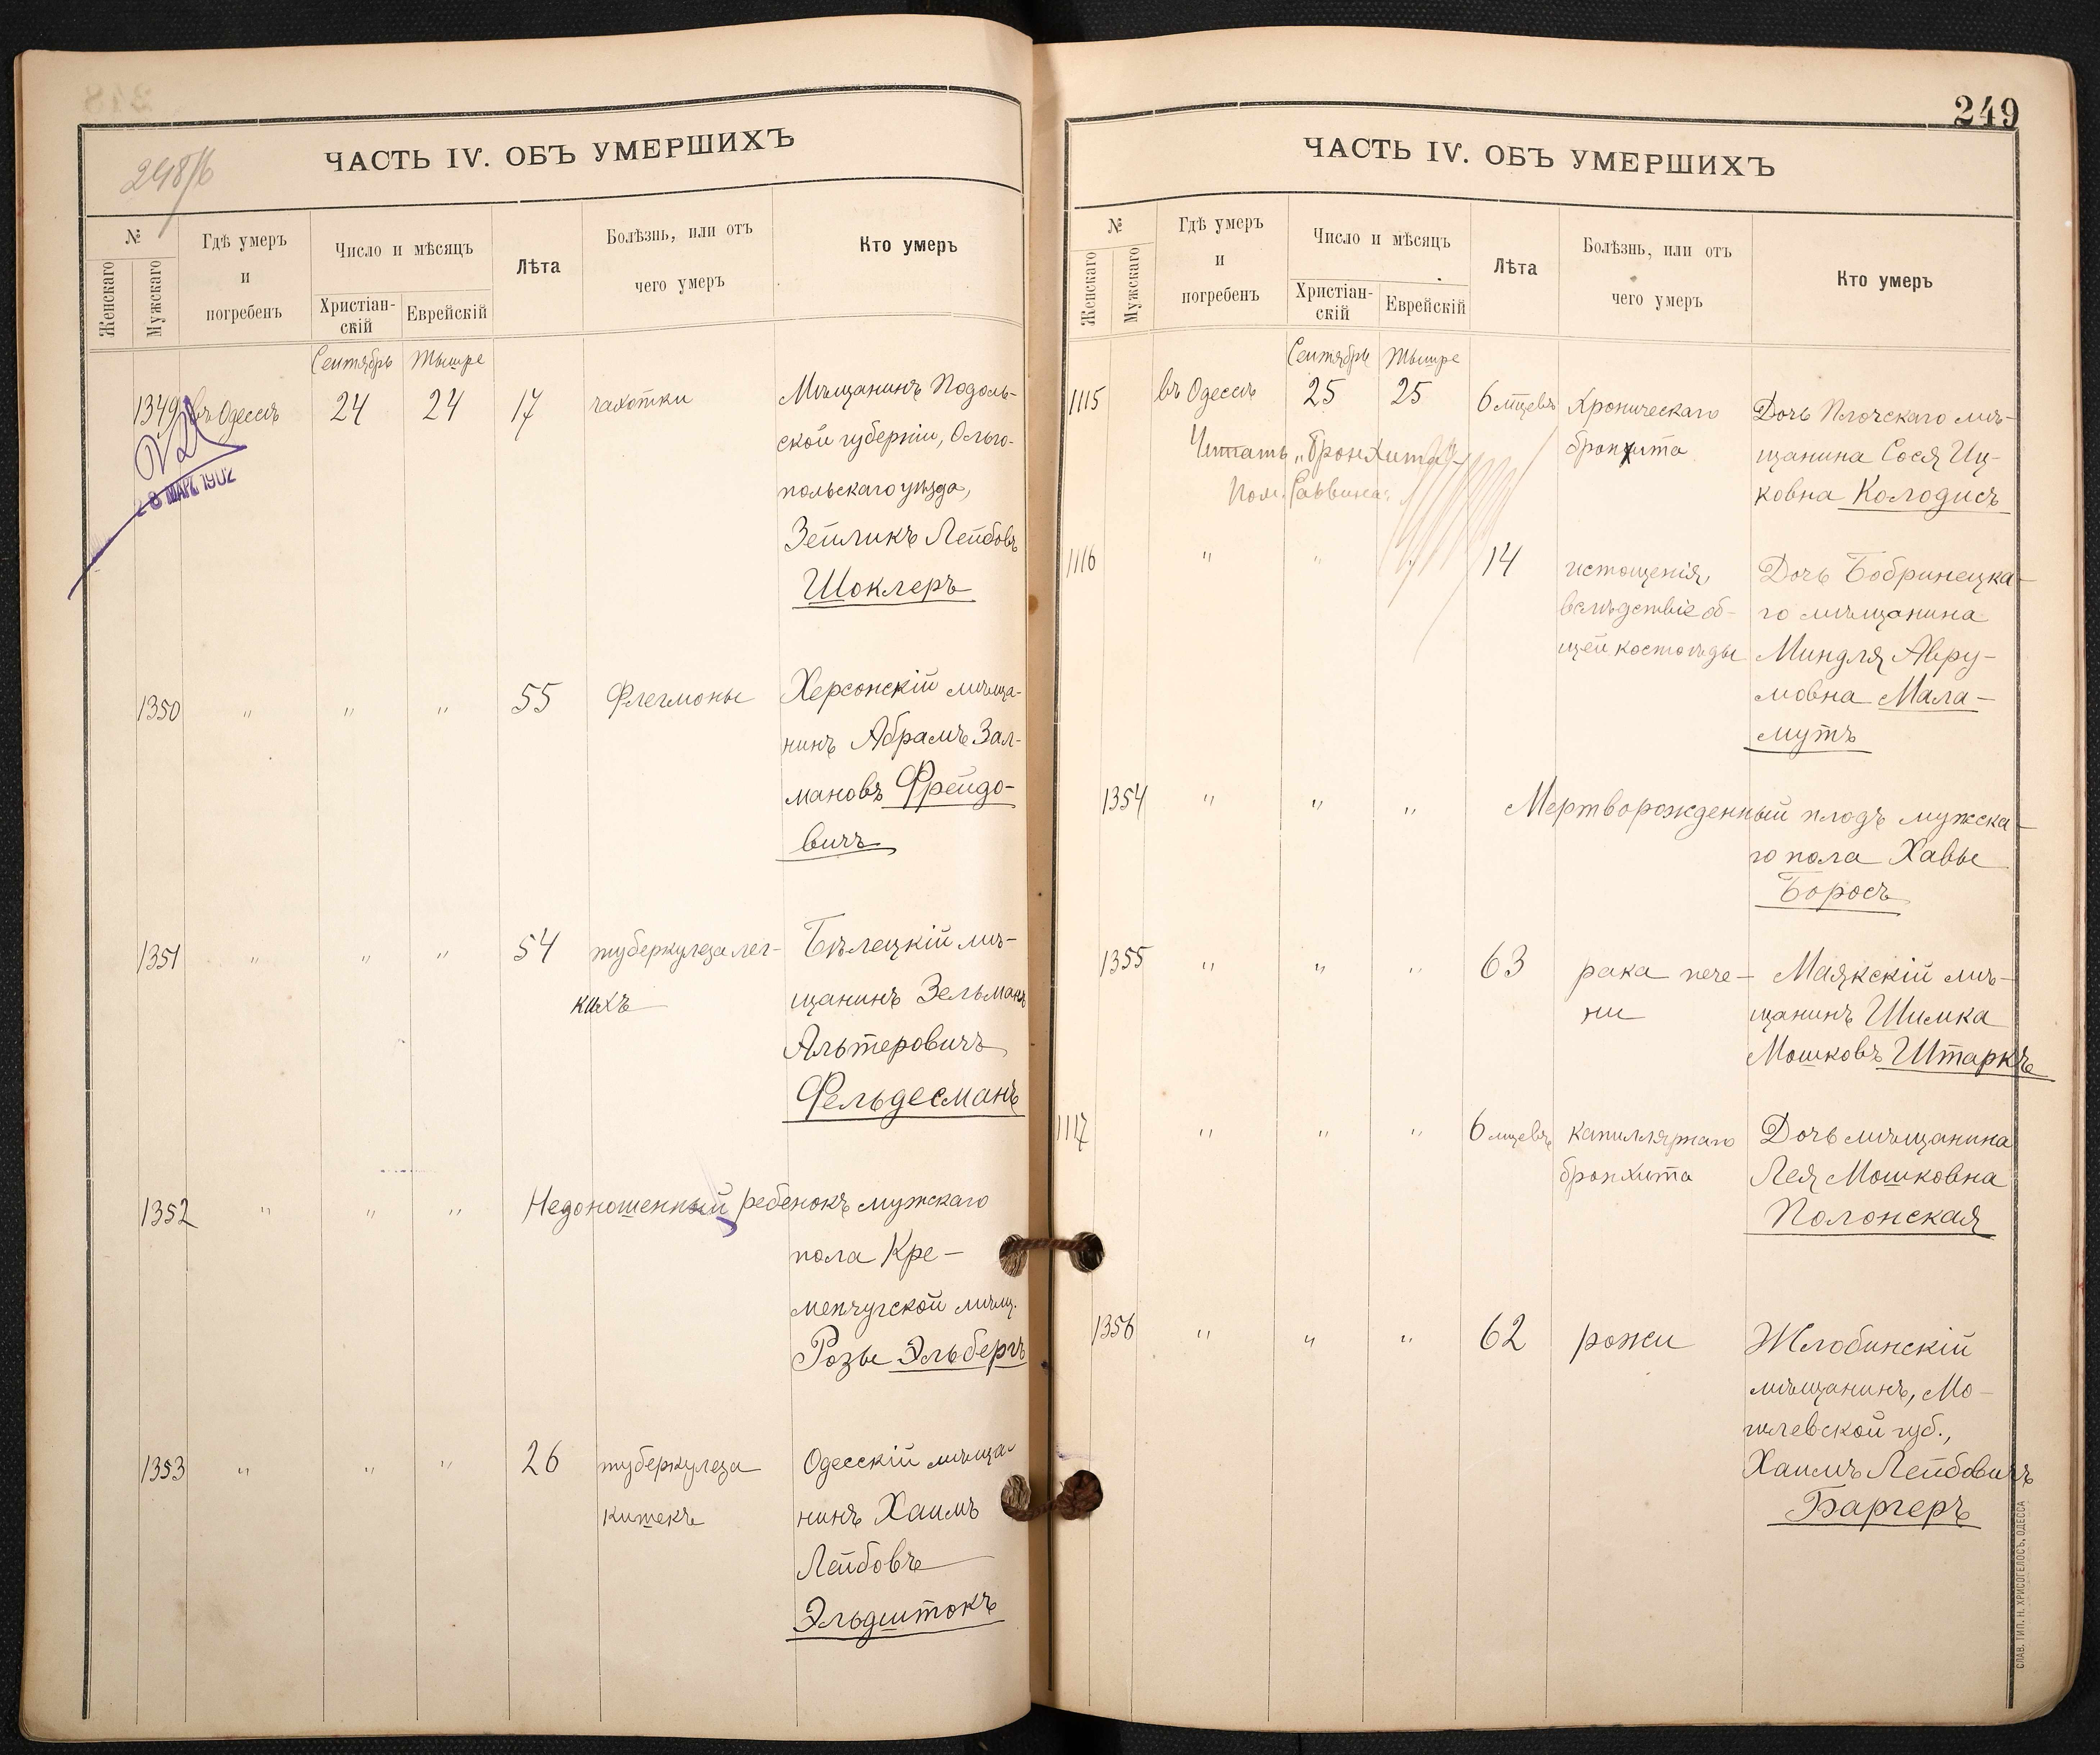 248/б
ЧАСТЬ IV. ОБЪ УМЕРШИХЪ
№
Женскаго
Мужскаго
Гдѣ умеръ
и
погребенъ
Число и мѣсяцъ
Христіан-
скій
Еврейскій
Лѣта
Болѣзнь, или отъ
чего умеръ
Кто умеръ
Сентябрь Тышре
1349 въ Одессѣ 24 24 17 чахотки Мѣщанинъ Подоль-
ской губерніи, Ольго-
польскаго уѣзда,
Зейликъ Лейбовъ
Шоклеръ
28 МАР. 1902
1350 " " " 55 Флегмоны Херсонскій мѣща-
нинъ Абрамъ Зал-
мановъ Фрейдо-
вичъ
1351 " " " 54 туберкулеза лег- Бѣлецкій мѣ-
кихъ щанинъ Зельманъ
Альтеровичъ
Фельдесманъ
1352 " " " Недоношенный ребенокъ мужскаго
пола Кре-
менчугской мѣщ.
Розы Эльбергъ
1353 " " " 26 туберкулеза Одесскій мѣща-
кишекъ нинъ Хаимъ
Лейбовъ
Эльдштокъ
249
ЧАСТЬ IV. ОБЪ УМЕРШИХЪ
№
Женскаго
Мужскаго
Гдѣ умеръ
и
погребенъ
Число и мѣсяцъ
Христіан-
скій
Еврейскій
Лѣта
Болѣзнь, или отъ
чего умеръ
Кто умеръ
Сентябрь Тышре
1115 въ Одессѣ 25 25 6 мѣсцевъ Хроническаго Дочь Плочскаго мѣ-
Читать „бронхита" бронхита щанина Сося Иц-
Пом. Раввина: ковна Колодисъ
1116 " " " 14 истощенія, Дочь Бобринецка-
вслѣдствіе об- го мѣщанина
щей костоѣды Миндля Авру-
мовна Мала-
мутъ
1354 " " " Мертворожденный плодъ мужска-
го пола Хавы
Боросъ
1355 " " " 63 рака пече- Маякскій мѣ-
ни щанинъ Шимка
Мошковъ Штаркъ
1117 " " " 6 мцевъ капиллярнаго Дочь мѣщанина
бронхита Лея Мошковна
Полонская
1356 " " " 62 рожи Жлобинскій
мѣщанинъ, Мо-
гилевской губ.,
Хаимъ Лейбовичъ
Баргеръ
СЛАВ. ТИП. Н. ХРИСОГЕЛОСЪ, ОДЕССА